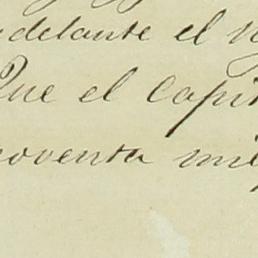 adelante el
Que el capit
noventa mil